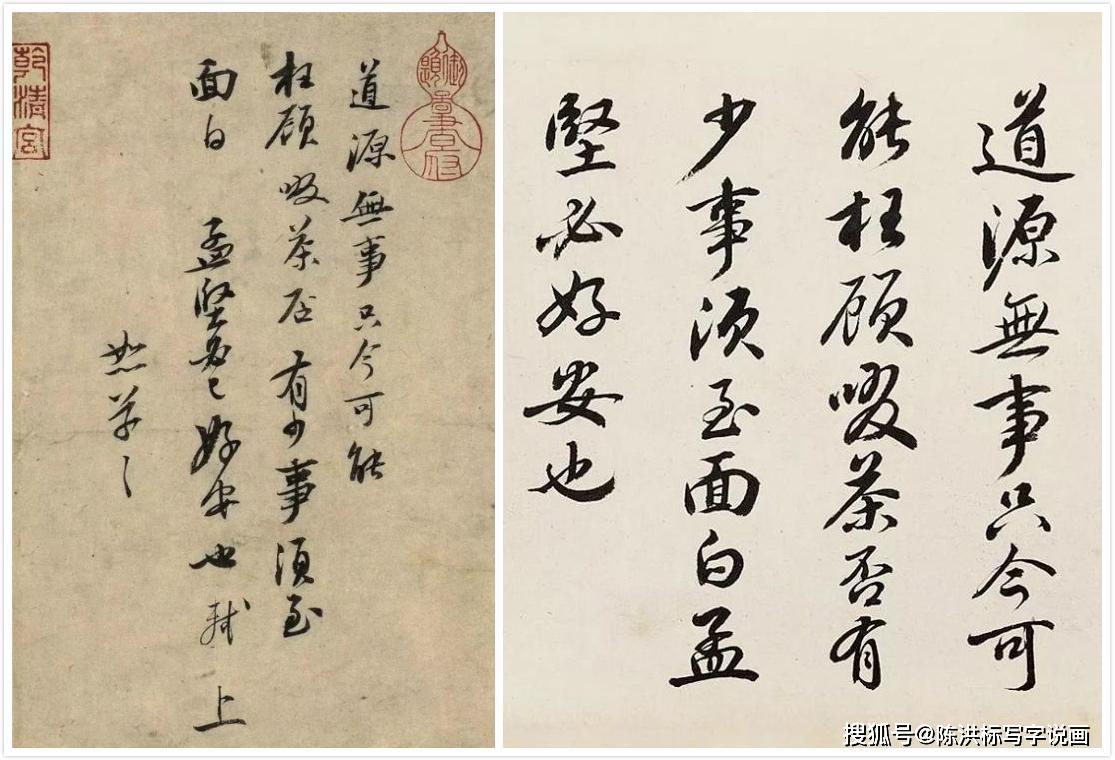 道源無事只今可能
枉顧啜茶否有少事須至
面白 孟堅必已好安也 軾上
恕草草
乾清宮
道源無事只今可
能枉顧啜茶否有
少事須至面白孟
堅必好安也
搜狐号@陈洪标写字说画